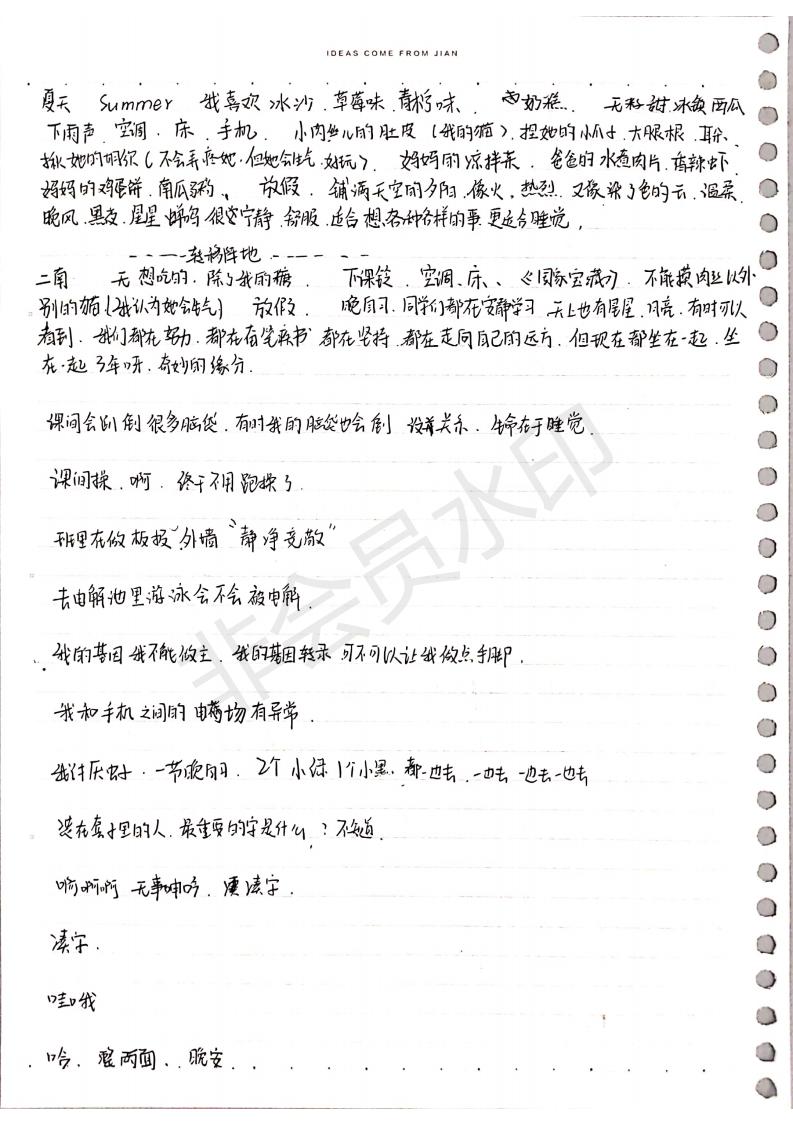 IDEAS COME FROM JIAN
夏天 Summer 我喜欢冰沙、草莓味、青柠味、奶糕、无籽甜冰镇西瓜
下雨声、空调、床、手机、小肉丝儿的肚皮(我的猫)、捏她的小爪子、大腿根、耳朵、
揪她的(不会弄疼她、但她会生气、好玩)、妈妈的凉拌菜、爸爸的水煮肉片、香辣虾
妈妈的鸡蛋饼、南瓜粥、放假、铺满天空的夕阳、像火、热烈、又像染了色的云、温柔
晚风、黑夜、星星、蝉鸣、很安宁静、舒服、适合想各种各样的事、更适合睡觉,
----转移阵地-----
二南 无想吃的、除了我的糖、下课铃、空调、床、《国家宝藏》、不能摸肉丝以外
别的猫(我认为她会生气) 放假 晚自习、同学们都在安静学习、天上也有星星、月亮、有时可以
看到、我们都在努力、都在看笔弃书、都在坚持、都在走向自己的远方、但现在都坐在一起、坐
在一起3年呀、奇妙的缘分.
课间会趴倒很多脑袋、有时我的脑袋也会倒 没有关系、生命在于睡觉.
课间操、啊、终于不用跑操了
班里在做板报、外墙“静净竞敬”
去电解池里游泳会不会被电解.
我的基因我不能做主、我的基因转录可不可以让我做点手脚.
我和手机之间的电荷场有异常.
我讨厌虫子、一节晚自习、2个小绿1个小黑、都一边去、一边去一边去一边去
装在套子里的人、最重要的字是什么?不知道
啊啊啊 无事呻吟、要凑字.
凑字.
哇哦
哈、凑两面、晚安
非会员水印